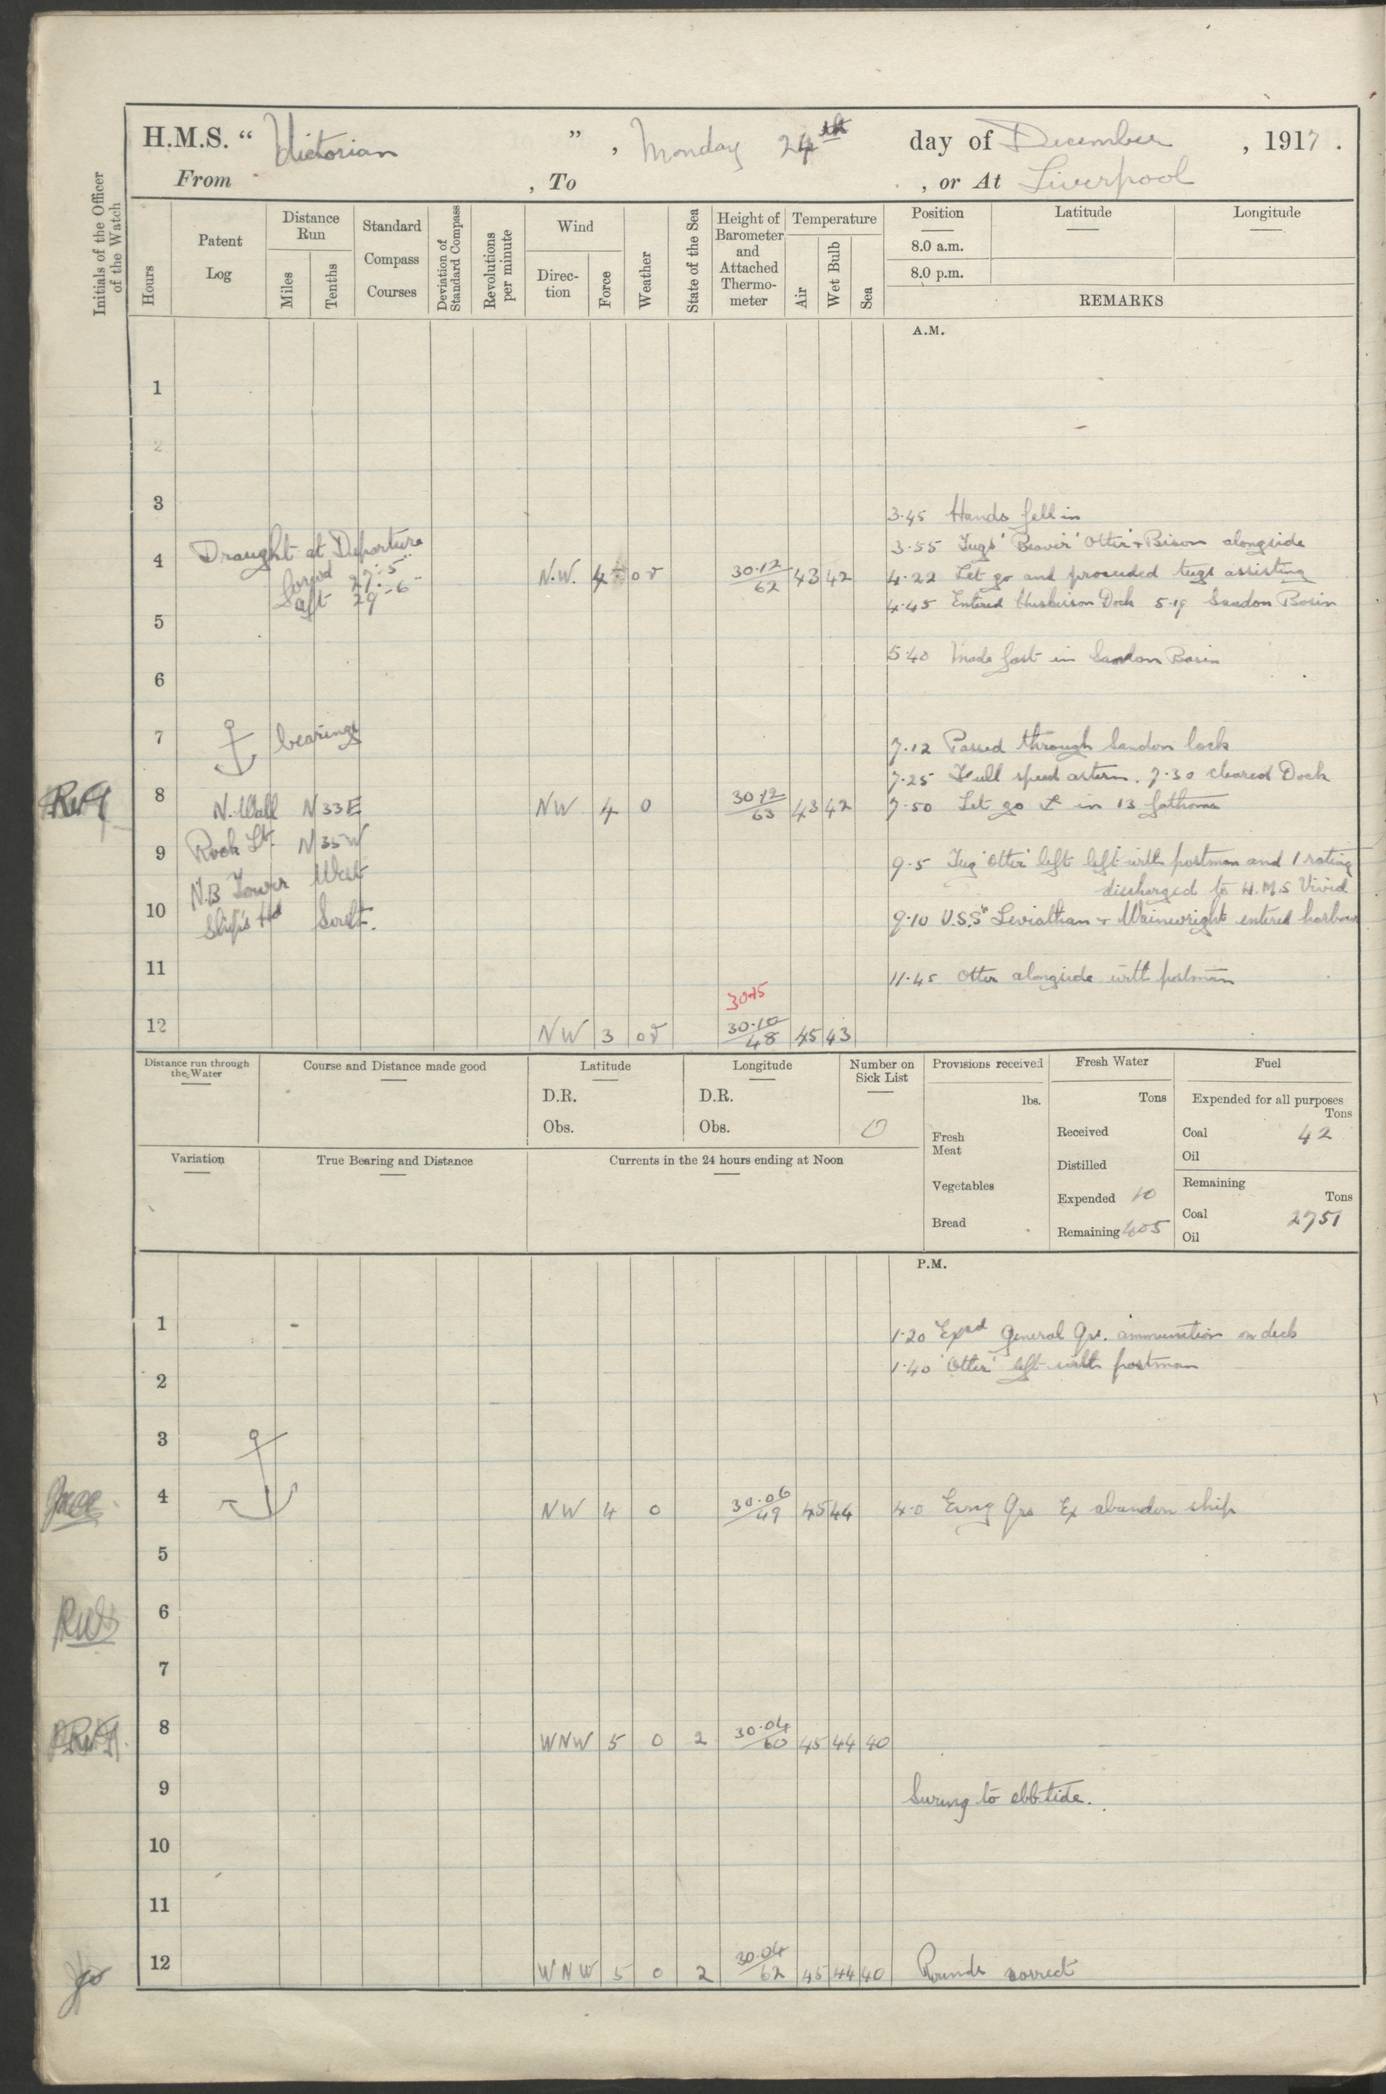 H.M.S. " Victorian ", Monday 24th day of December, 1917.
From , To , or At Liverpool
Initials of the Officer of the Watch
Hours
Patent Log
Distance Run
Miles
Tenths
Standard Compass Courses
Deviation of Standard Compass
Revolutions per minute
Wind
Direc-tion
Force
Weather
State of the Sea
Height of Barometer and Attached Thermo-meter
Temperature
Air
Wet Bulb
Sea
Position Latitude Longitude
8.0 a.m.
8.0 p.m.
REMARKS
A.M.
1
2
3
3.45 Hands fell in
Draught at Departure
3.55 Tugs 'Beaver' Otter & Bison alongside
4 N.W. 4 30.12/62 43 42 4.22 Let go and proceeded tugs assisting
forwd 27'-5"
aft 29-6
4.45 Entered Huskisson Dock 5.19 Sandon Basin
5
5.40 Made fast in Sandon Basin
6
7 bearings
7.12 Passed through Sandon lock
7.25 Full speed astern. 7.30 cleared Dock
8 N. Wall N 33 E NW 4 0 30.12/63 43 42 7.50 Let go in 13 fathoms
9 Rock Lt. N 35 W
9.5 Tug 'Otter' left left with postman and 1 rating
N.B Tower West
discharged to H.M.S Vivid
10 Ship's Hd South.
9.10 U.S.S "Leviathan & Wainwright entered harbour
11
11.45 Otter alongside with postman
30.15
12 NW 3 30.10/48 45 43
Distance run through the Water
Course and Distance made good
Latitude
D.R.
Obs.
Longitude
D.R.
Obs.
Number on Sick List
0
Provisions received
lbs.
Fresh Meat
Vegetables
Bread
Fresh Water
Tons
Received
Distilled
Expended 10
Remaining 405
Fuel
Expended for all purposes
Tons
Coal 42
Oil
Remaining
Tons
Coal 2751
Oil
Variation
True Bearing and Distance
Currents in the 24 hours ending at Noon
P.M.
1
1.20 Exd General Qrs. ammunition on deck
1.40 'Otter' left with postman
2
3
4 NW 4 0 30.06/49 45 44 4.0 Evng Qrs Ex abandon ship
5
6
7
8 WNW 5 0 2 30.04/60 45 44 40
9 Swung to ebb tide.
10
11
12 WNW 5 0 2 30.04/62 45 44 40 Rounds correct